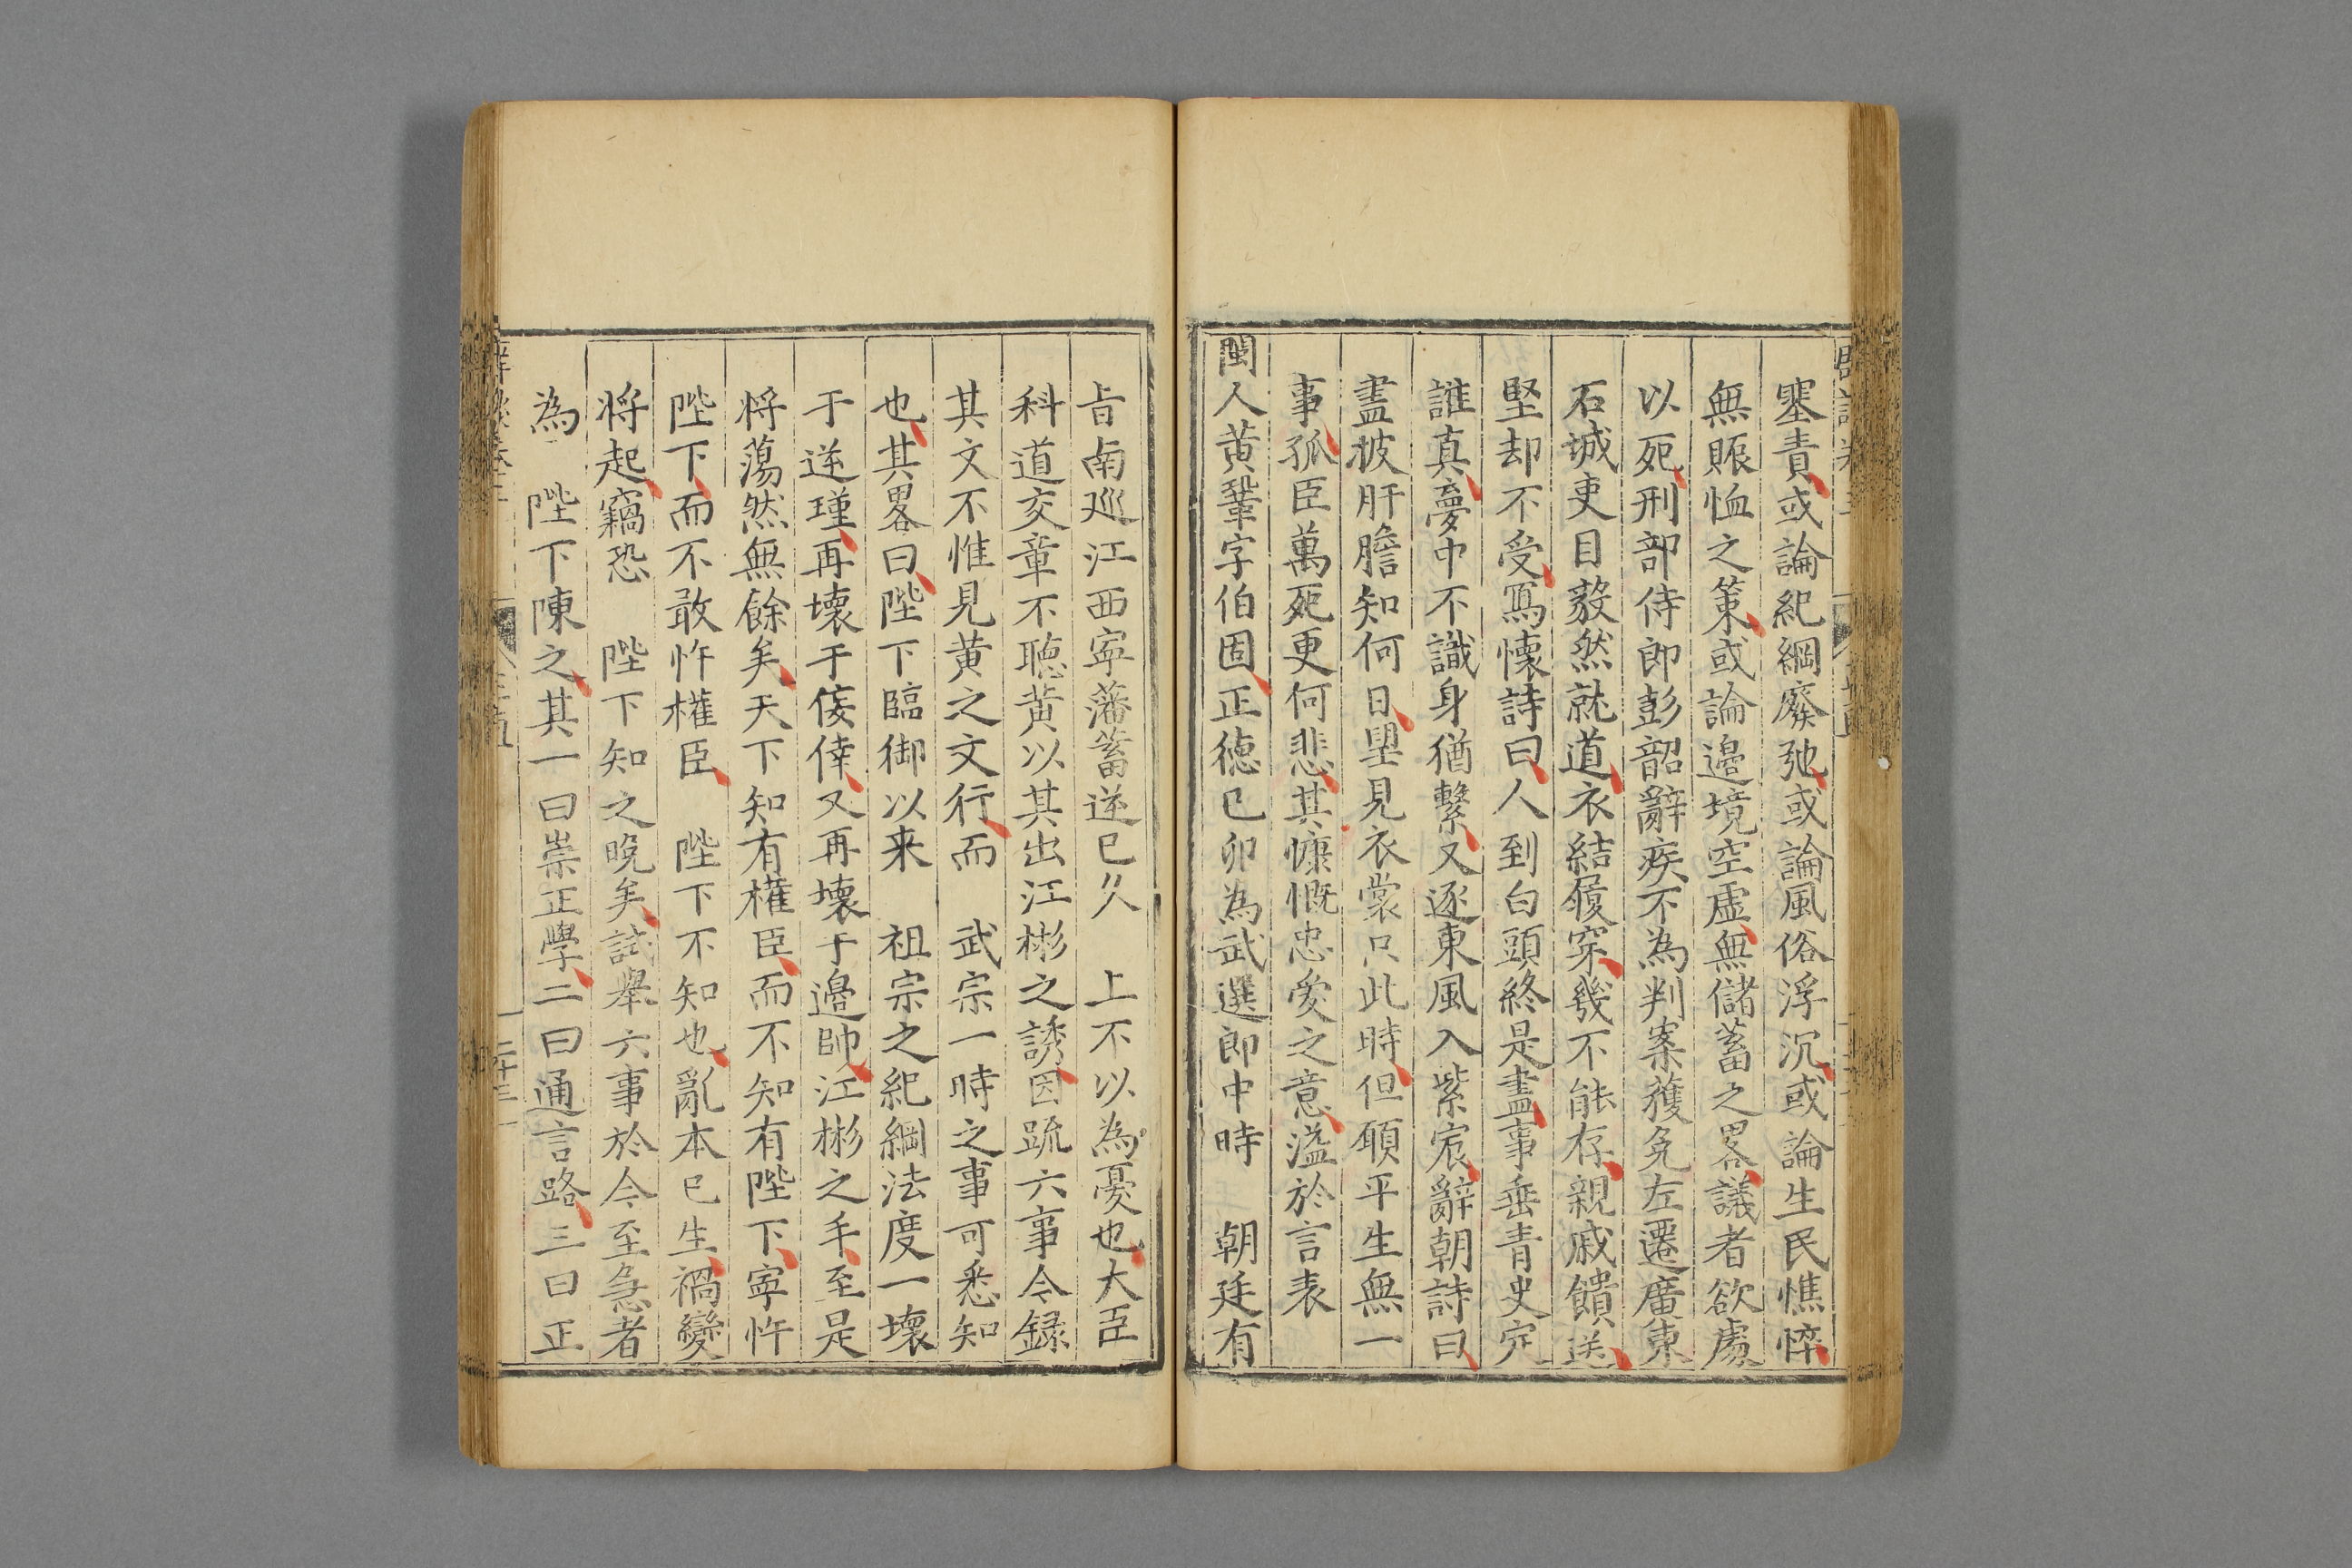 塞責或論紀綱廢弛或論風俗浮沉或論生民憔悴
無賑恤之策或論邉境空虛無儲蓄之畧議者欲處
以死刑部侍郎彭韶辭疾不為判案獲免左遷廣東
石城吏目毅然就道衣結履穿幾不能存親戚饋送
堅却不受寫懷詩曰人到白頭終是盡事垂青史定
誰真夢中不識身猶繫又逐東風入紫宸辭朝詩曰
盡披肝膽知何日望見衣裳只此時但願平生無一
事孤臣萬死更何悲其慷慨忠愛之意溢於言表
閩人黄鞏字伯固正德己卯為武選郎中時　朝廷有
旨南廵江西寧藩蓄逆已久　上不以為憂也大臣
科道交章不聽黄以其出江彬之誘因疏六事今録
其文不惟見黄之文行而　武宗一時之事可悉知
也其畧曰陛下臨御以来　祖宗之紀綱法度一壞
于逆瑾再壞于佞倖又再壞于邉帥江彬之手至是
将蕩然無餘矣天下知有權臣而不知有陛下寧忤
陛下而不敢忤權臣　陛下不知也亂本已生禍變
将起竊恐　陛下知之晚矣試舉六事於今至急者
為　陛下陳之其一曰崇正學二曰通言路三曰正